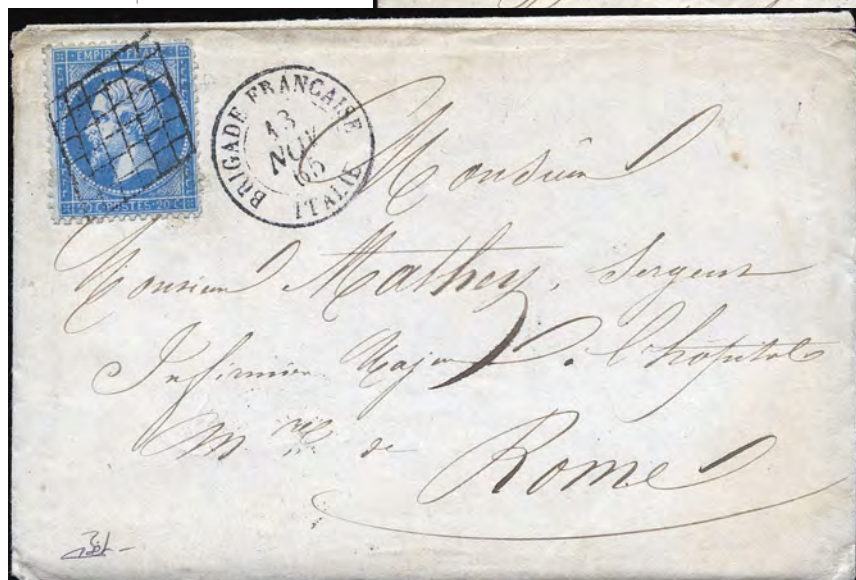 EMPIRE FRANC
20 C POSTES 20 C
BRIGADE FRANÇAISE
13
NOV
65
ITALIE
Monsieur
Monsieur Mathey, Sergent
Infirmier Major à l'hôpital
M re de
Rome